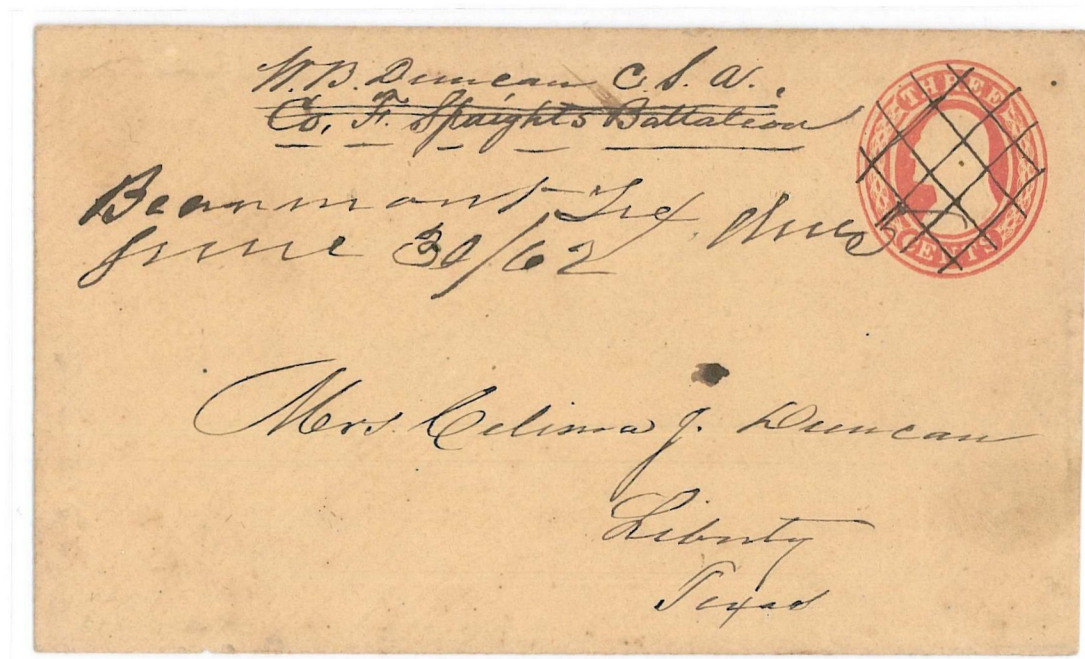 W. B. Duncan C. S. A.,
Co. F. Spaights Battalion
Beaumont Tex due 5
June 30/62
THREE
CENTS
Mrs. Celima J. Duncan
Liberty
Texas